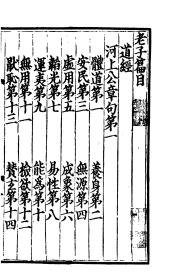 老子篇目
道經
河上公章句第一
體道第一　養身第二
安民第三　無源第四
虛用第五　成象第六
韜光第七　易性第八
運夷第九　能爲第十
無用第十一　檢欲第十二
猒恥第十三　贊玄第十四